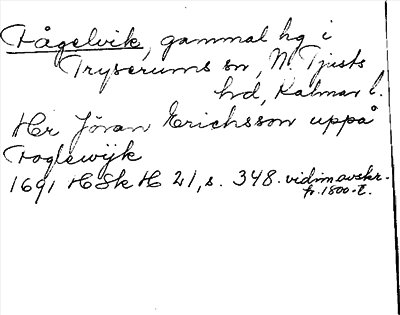 Fågelvik, gammal hg i
Tryserums sn, N. Tjusts
hd, Kalmar l.
Her Jöran Erichsson uppå
Foglewijk
1691 HSkH 21, s. 348. vidim avskr.
fr. 1800-t.